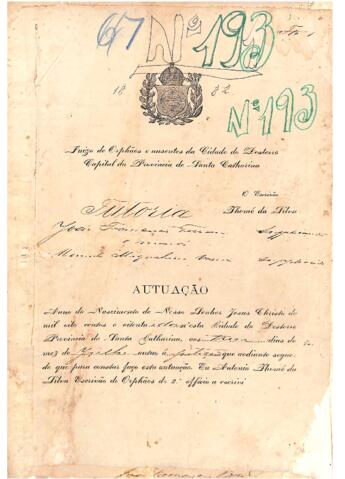 67 Nº 193
18 82
Nº 193
Juizo de Orphãos e ausentes da Cidade do Desterro
Capital da Provincia de Santa Catharina
O Escrivão
Tutoria Thomé da Silva
João Francisco
e menor
Manoel
AUTUAÇÃO
Anno do Nascimento de Nosso Senhor Jesus Christo de
mil oito centos e oitenta e dous esta Cidade do Desterro
Provincia de Santa Catharina, aos dias do
mez de Julho autuo a petição que aodiante segue,
de que para constar faço esta autuação. Eu Antonio Thomé da
Silva Escrivão de Orphãos de 2.º officio a escrivi